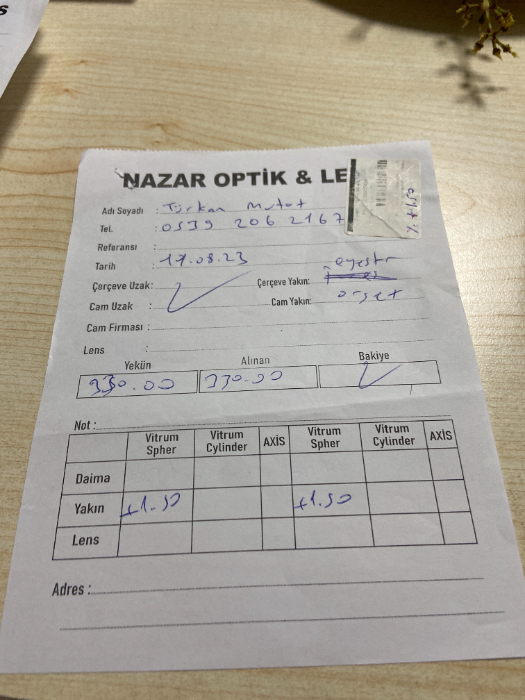 NAZAR OPTİK & LE
Adı Soyadı : Türkan Mutat
Tel. : 0539 206 2167
Referansı :
Tarih : 17.08.23
Çerçeve Uzak: Çerçeve Yakın:
Cam Uzak : Cam Yakın:
Cam Firması :
Lens :
Yekün Alınan Bakiye
330.00 330.00
Not :
Vitrum Spher Vitrum Cylinder AXİS Vitrum Spher Vitrum Cylinder AXİS
Daima
Yakın +1.50 +1.50
Lens
Adres :